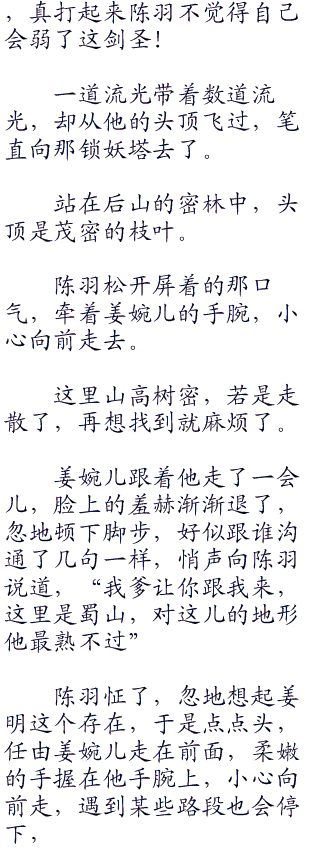 ，真打起来陈羽不觉得自己
会弱了这剑圣！
一道流光带着数道流
光，却从他的头顶飞过，笔
直向那锁妖塔去了。
站在后山的密林中，头
顶是茂密的枝叶。
陈羽松开屏着的那口
气，牵着姜婉儿的手腕，小
心向前走去。
这里山高树密，若是走
散了，再想找到就麻烦了。
姜婉儿跟着他走了一会
儿，脸上的羞赫渐渐退了，
忽地顿下脚步，好似跟谁沟
通了几句一样，悄声向陈羽
说道，“我爹让你跟我来，
这里是蜀山，对这儿的地形
他最熟不过”
陈羽怔了，忽地想起姜
明这个存在，于是点点头，
任由姜婉儿走在前面，柔嫩
的手握在他手腕上，小心向
前走，遇到某些路段也会停
下，